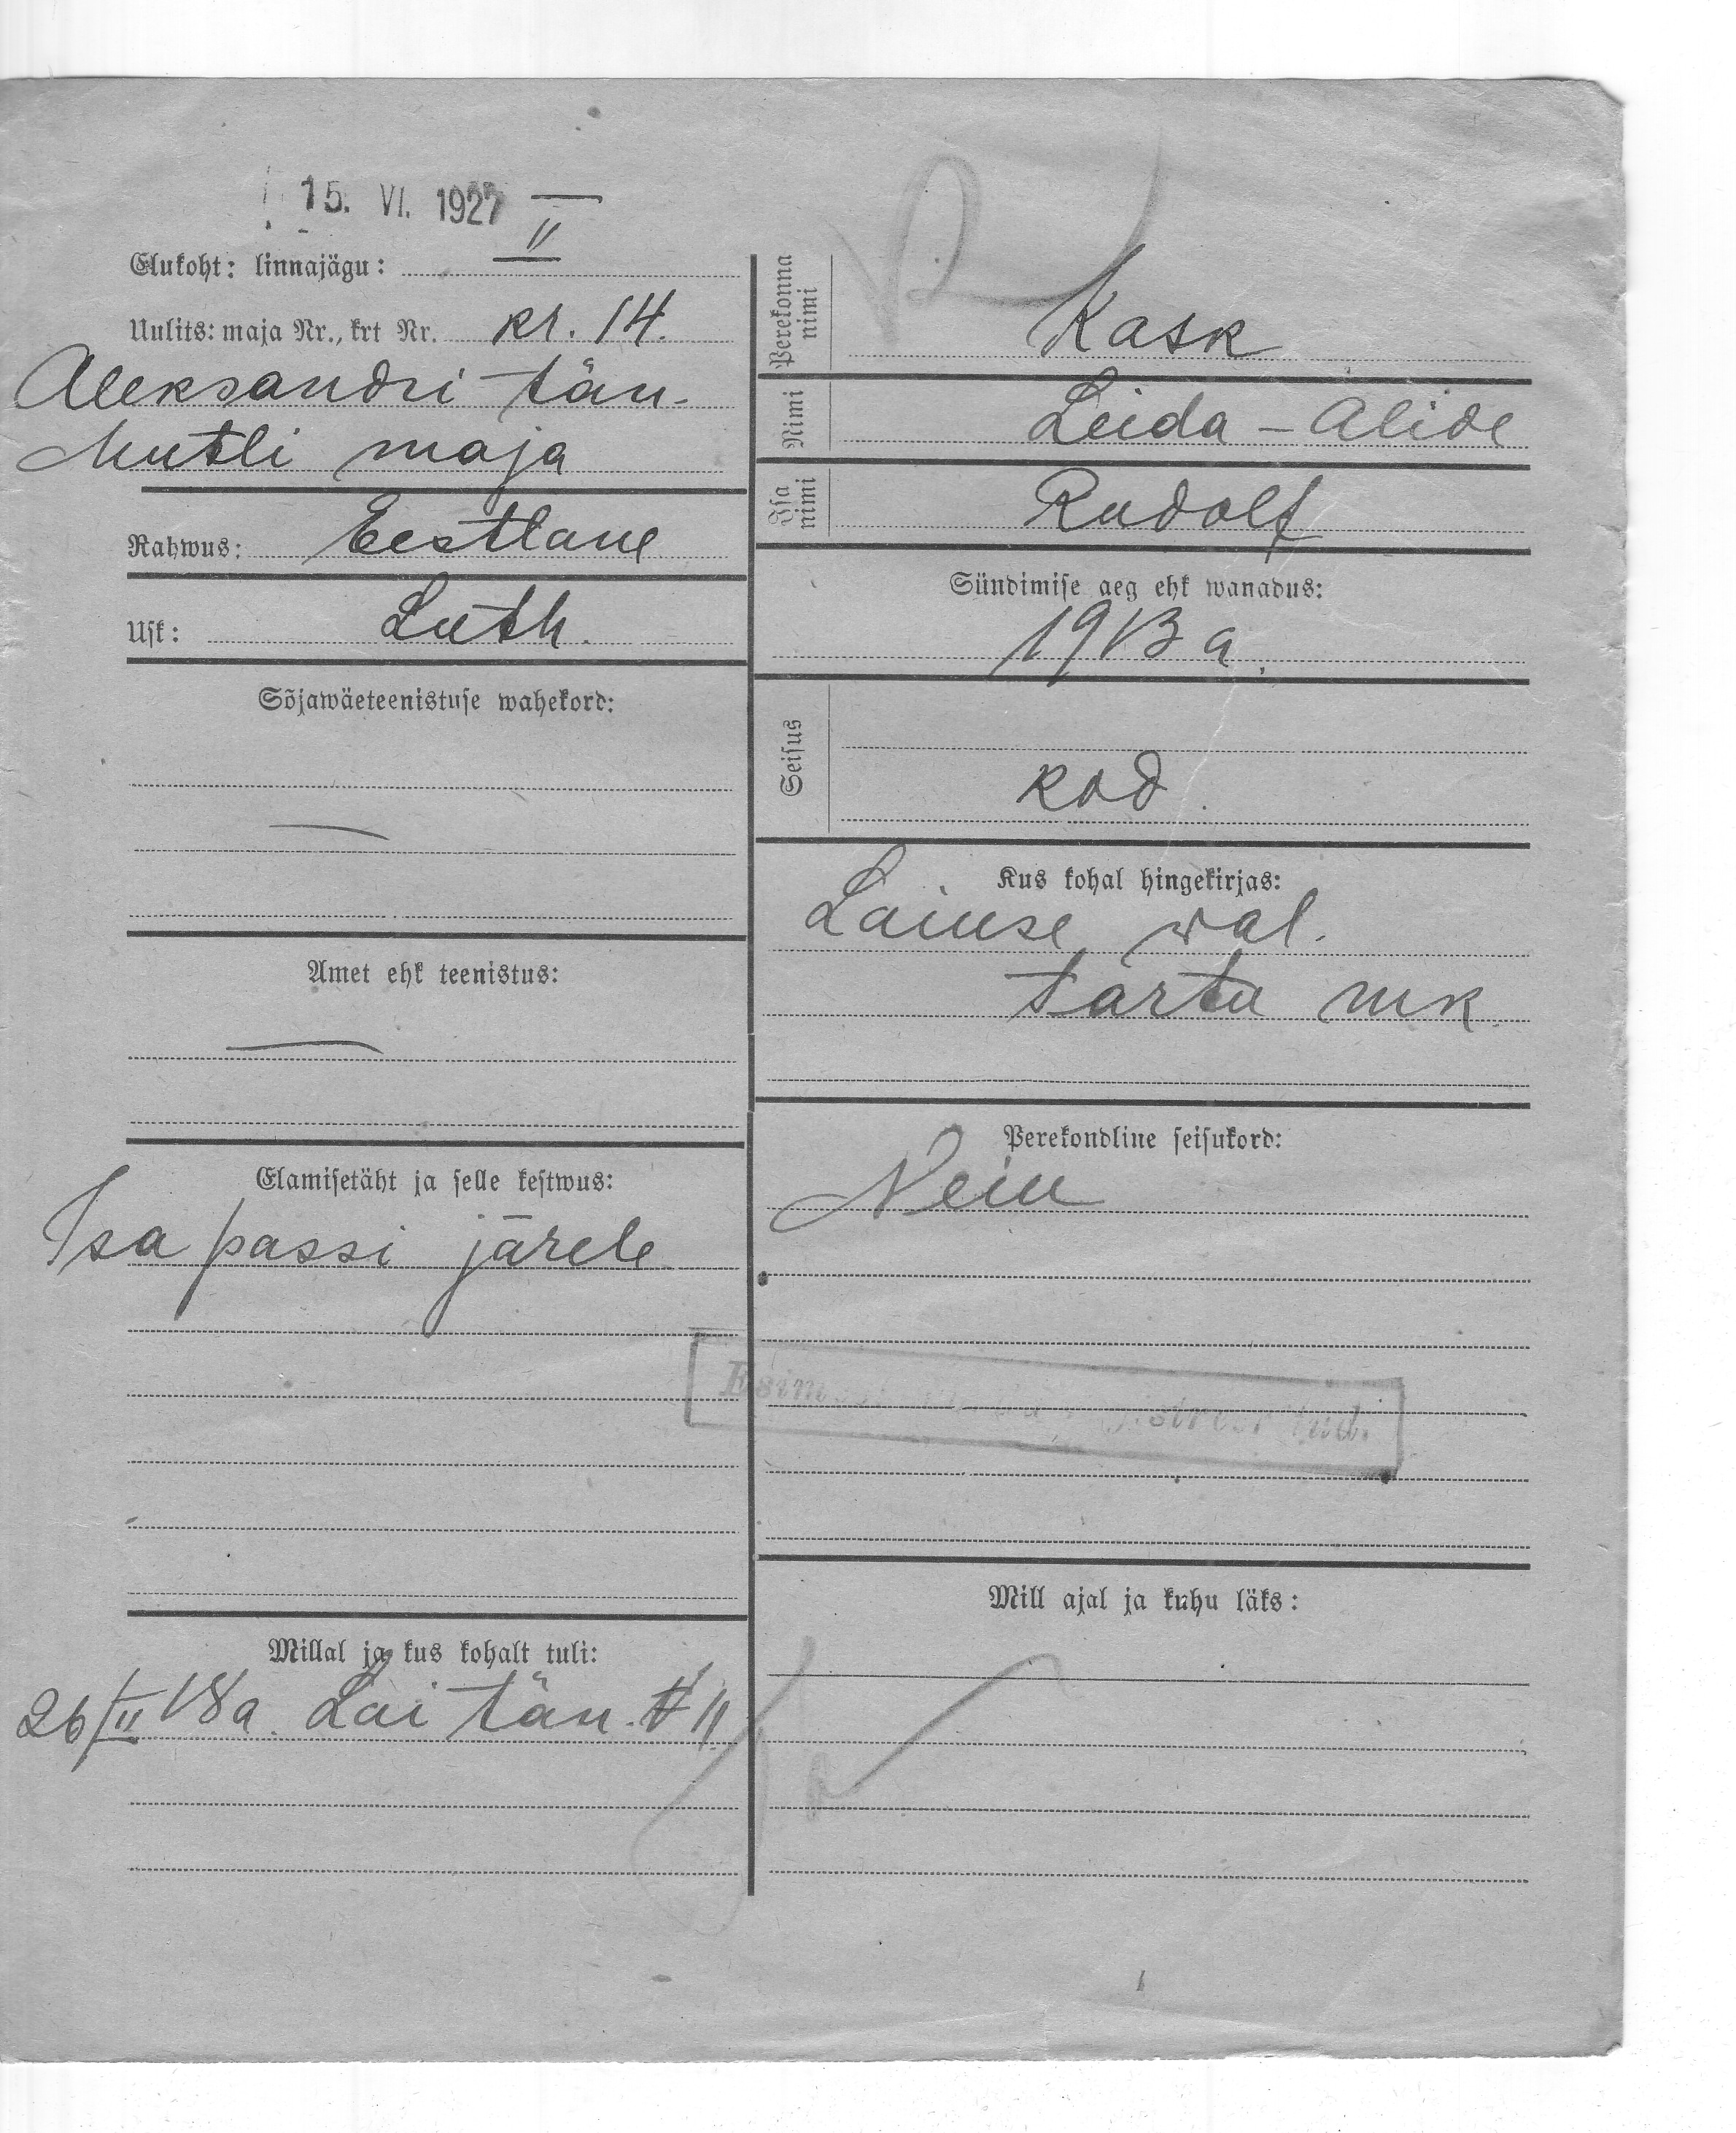 15. VI. 1927
II
Elukoht: linnajägu:
Uulits: maja Nr., krt Nr. kr. 14.
Aleksandri tän.
Mutli maja
Rahwus: Eestlane
Usk: Luth.
Sõjawäeteenistuse wahekord:
Amet ehk teenistus:
Elamisetäht ja selle kestwus:
Isa passi järele
Millal ja kus kohalt tuli:
26/II 18 a. Lai tän. # 11
Perekonna nimi Kask
Nimi Leida - Alide
Isa nimi Rudolf
Sündimise aeg ehk wanadus:
1913 a.
Seisus
kod.
Kus kohal hingekirjas:
Laiuse wal.
Tartu mk.
Perekondline seisukord:
Neiu
Mill ajal ja kuhu läks: